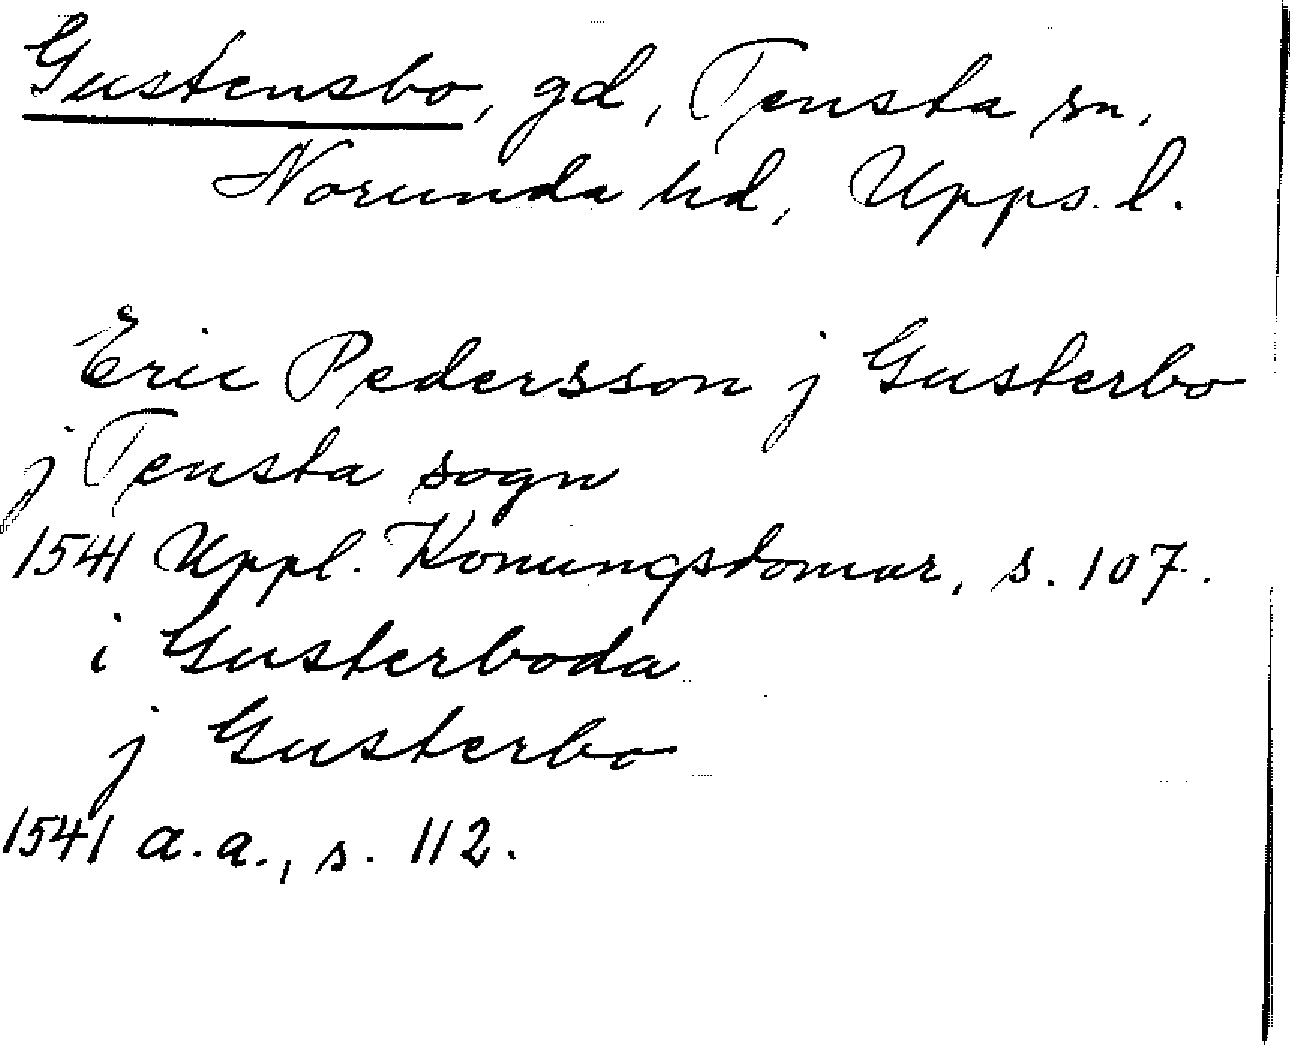 Gustensbo, gd, Tensta sn,
Norunda hd, Upps. l.
Eric Pedersson j Gusterbo
j Tensta sogn
1541 Uppl. Konungsdomar, s. 107.
i Gusterboda
j Gusterbo
1541 a.a., s. 112.